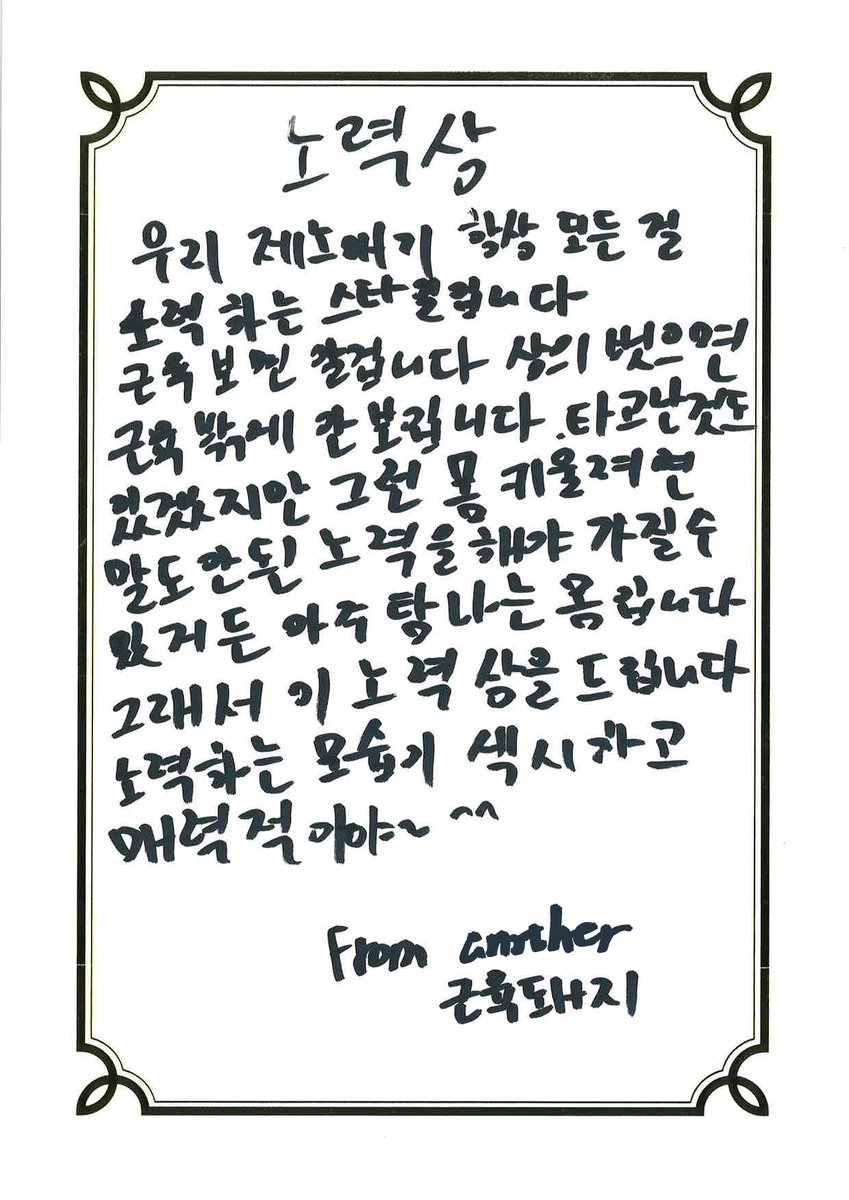 노력상
우리 제노애기 항상 모든 걸
노력 하는 스타일입니다
근육 보면 알겁니다 상의 벗으면
근육 밖에 안 보입니다. 타고난것도
있겠지만 그런 몸 키울려면
말도안된 노력을해야 가질수
있거든 아주 탐나는 몸입니다
그래서 이 노력 상을 드립니다
노력하는 모습이 섹시하고
매력적이야~ ^^
From another
근육돼지